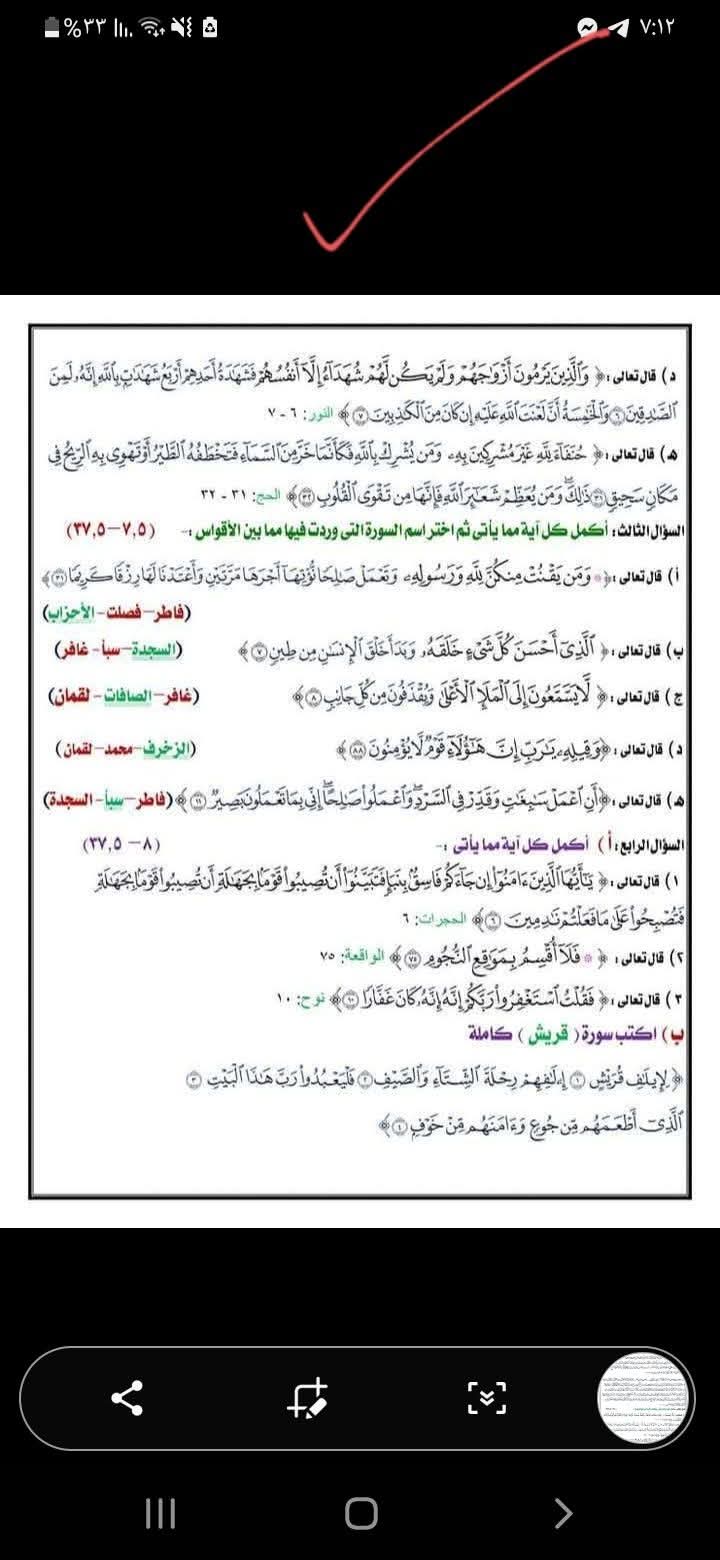 %٣٣ ٧:١٢
د) قال تعالى: ﴿ وَٱلَّذِينَ يَرْمُونَ أَزْوَٰجَهُمْ وَلَمْ يَكُن لَّهُمْ شُهَدَآءُ إِلَّآ أَنفُسُهُمْ فَشَهَٰدَةُ أَحَدِهِمْ أَرْبَعُ شَهَٰدَٰتٍۭ بِٱللَّهِ إِنَّهُۥ لَمِنَ
ٱلصَّٰدِقِينَ ۝٦ وَٱلْخَٰمِسَةُ أَنَّ لَعْنَتَ ٱللَّهِ عَلَيْهِ إِن كَانَ مِنَ ٱلْكَٰذِبِينَ ۝٧ ﴾ النور: ٦ - ٧
هـ) قال تعالى: ﴿ حُنَفَآءَ لِلَّهِ غَيْرَ مُشْرِكِينَ بِهِۦ وَمَن يُشْرِكْ بِٱللَّهِ فَكَأَنَّمَا خَرَّ مِنَ ٱلسَّمَآءِ فَتَخْطَفُهُ ٱلطَّيْرُ أَوْ تَهْوِى بِهِ ٱلرِّيحُ فِى
مَكَانٍ سَحِيقٍ ۝٣١ ذَٰلِكَ وَمَن يُعَظِّمْ شَعَٰٓئِرَ ٱللَّهِ فَإِنَّهَا مِن تَقْوَى ٱلْقُلُوبِ ۝٣٢ ﴾ الحج: ٣١ - ٣٢
السؤال الثالث: أكمل كل آية مما يأتى ثم اختر اسم السورة التى وردت فيها مما بين الأقواس :- (٧,٥ – ٣٧,٥)
أ) قال تعالى: ﴿ ۞ وَمَن يَقْنُتْ مِنكُنَّ لِلَّهِ وَرَسُولِهِۦ وَتَعْمَلْ صَٰلِحًا نُّؤْتِهَآ أَجْرَهَا مَرَّتَيْنِ وَأَعْتَدْنَا لَهَا رِزْقًا كَرِيمًا ۝٣١ ﴾
(فاطر – فصلت - الأحزاب)
ب) قال تعالى: ﴿ ٱلَّذِىٓ أَحْسَنَ كُلَّ شَىْءٍ خَلَقَهُۥ وَبَدَأَ خَلْقَ ٱلْإِنسَٰنِ مِن طِينٍ ۝٧ ﴾ (السجدة – سبأ - غافر)
ج) قال تعالى: ﴿ لَّا يَسَّمَّعُونَ إِلَى ٱلْمَلَإِ ٱلْأَعْلَىٰ وَيُقْذَفُونَ مِن كُلِّ جَانِبٍ ۝٨ ﴾ (غافر – الصافات - لقمان)
د) قال تعالى: ﴿ وَقِيلِهِۦ يَٰرَبِّ إِنَّ هَٰٓؤُلَآءِ قَوْمٌ لَّا يُؤْمِنُونَ ۝٨٨ ﴾ (الزخرف – محمد - لقمان)
هـ) قال تعالى: ﴿ أَنِ ٱعْمَلْ سَٰبِغَٰتٍ وَقَدِّرْ فِى ٱلسَّرْدِ وَٱعْمَلُوا۟ صَٰلِحًا إِنِّى بِمَا تَعْمَلُونَ بَصِيرٌ ۝١١ ﴾ (فاطر – سبأ - السجدة)
السؤال الرابع: أ) أكمل كل آية مما يأتى :- (٨ – ٣٧,٥)
١) قال تعالى: ﴿ يَٰٓأَيُّهَا ٱلَّذِينَ ءَامَنُوٓا۟ إِن جَآءَكُمْ فَاسِقٌۢ بِنَبَإٍ فَتَبَيَّنُوٓا۟ أَن تُصِيبُوا۟ قَوْمًۢا بِجَهَٰلَةٍ أَن تُصِيبُوا۟ قَوْمًۢا بِجَهَٰلَةٍ
فَتُصْبِحُوا۟ عَلَىٰ مَا فَعَلْتُمْ نَٰدِمِينَ ۝٦ ﴾ الحجرات: ٦
٢) قال تعالى: ﴿ ۞ فَلَآ أُقْسِمُ بِمَوَٰقِعِ ٱلنُّجُومِ ۝٧٥ ﴾ الواقعة: ٧٥
٣) قال تعالى: ﴿ فَقُلْتُ ٱسْتَغْفِرُوا۟ رَبَّكُمْ إِنَّهُ إِنَّهُۥ كَانَ غَفَّارًا ۝١٠ ﴾ نوح: ١٠
ب) اكتب سورة ( قريش ) كاملة
﴿ لِإِيلَٰفِ قُرَيْشٍ ۝١ إِۦلَٰفِهِمْ رِحْلَةَ ٱلشِّتَآءِ وَٱلصَّيْفِ ۝٢ فَلْيَعْبُدُوا۟ رَبَّ هَٰذَا ٱلْبَيْتِ ۝٣
ٱلَّذِىٓ أَطْعَمَهُم مِّن جُوعٍ وَءَامَنَهُم مِّنْ خَوْفٍۭ ۝٤ ﴾